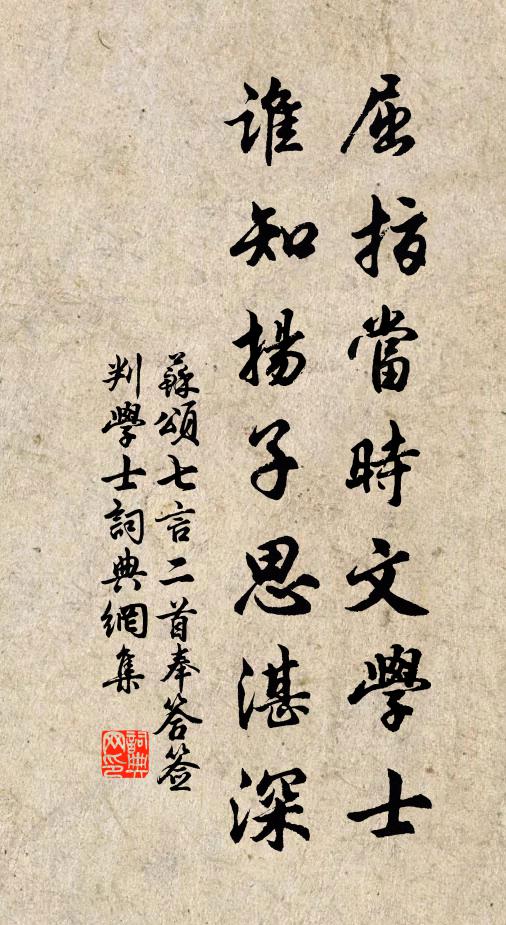 屈指當時文學士
誰知揚子思湛深
蘇頌七言二首奉答簽
判學士詞典網集
詞典网印